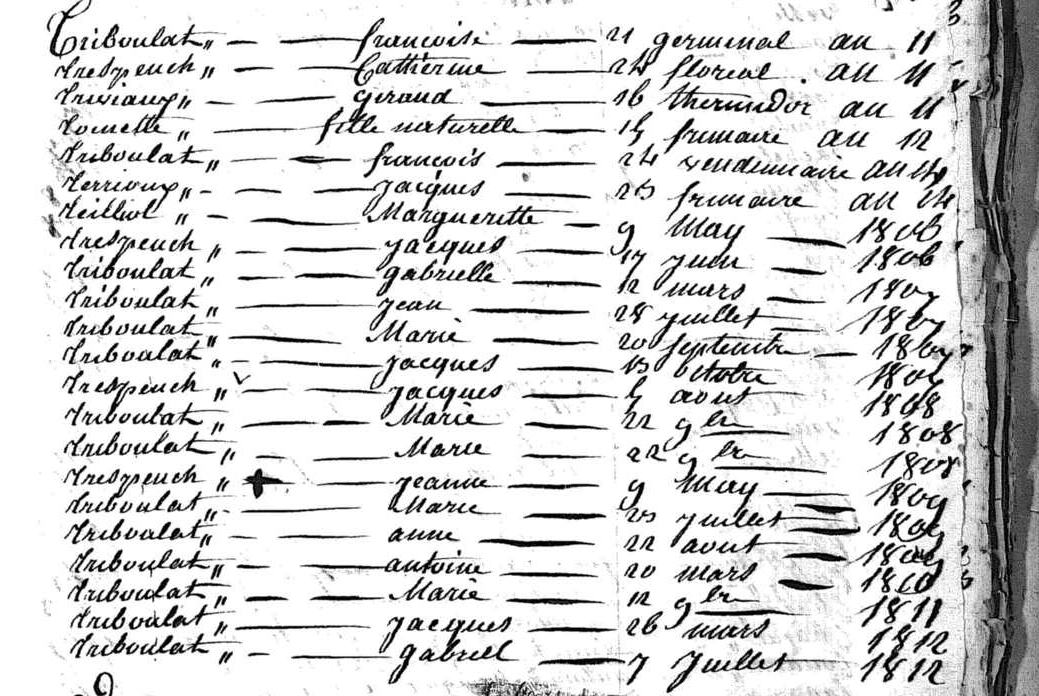 Triboulat " — — françoise — 21 germinal an 11
Trespeuch " — — Catherine — 24 floreal . an 11
Triviaux " — — giraud — 16 thermidor an 11
Tomette " — fille naturelle — 15 frimaire an 12
Triboulat " — — françois — 24 vendemiaire an 14
Terrioux " — — jacques — 23 frimaire an 14
Teilliol " — — Margueritte — 9 May — 1806
Trespeuch " — — jacques — 17 juin — 1806
Triboulat " — — gabrielle — 12 mars — 1807
Triboulat " — jean — 28 juillet — 1807
Triboulat " — Marie — 20 septembre — 1807
Triboulat " — — jacques — 13 octobre
Trespeuch " — jacques — aout 1808
Triboulat " — — Marie — 22 9 bre 1808
Triboulat " — Marie — 22 9 bre — 1808
Trespeuch " + — jeanne — 9 May — 1809
Triboulat " — Marie — juillet — 1809
Triboulat " — — anne — 22 aout — 1809
Triboulat " — — antoine — 20 mars — 1810
Triboulat " — — Marie — 12 9 bre — 1811
Triboulat " — — jacques — 26 mars 1812
Triboulat " — — gabriel — 7 Juillet — 1812